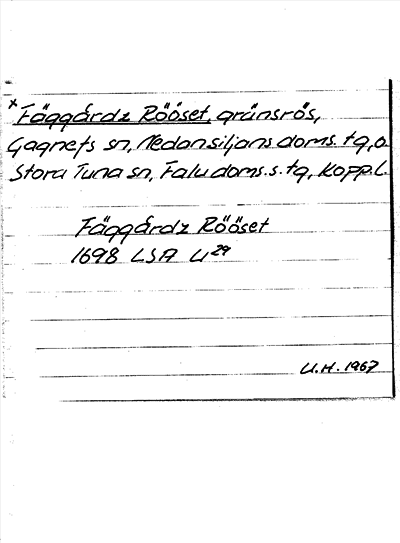 x Fäggårdz Rööset, gränsrös,
Gagnefs sn, Nedansiljans doms. tg, o.
Stora Tuna sn, Falu doms.s. tg, Kopp.l.
Fäggårdz Rööset
1698 LSA U29
U.H. 1967